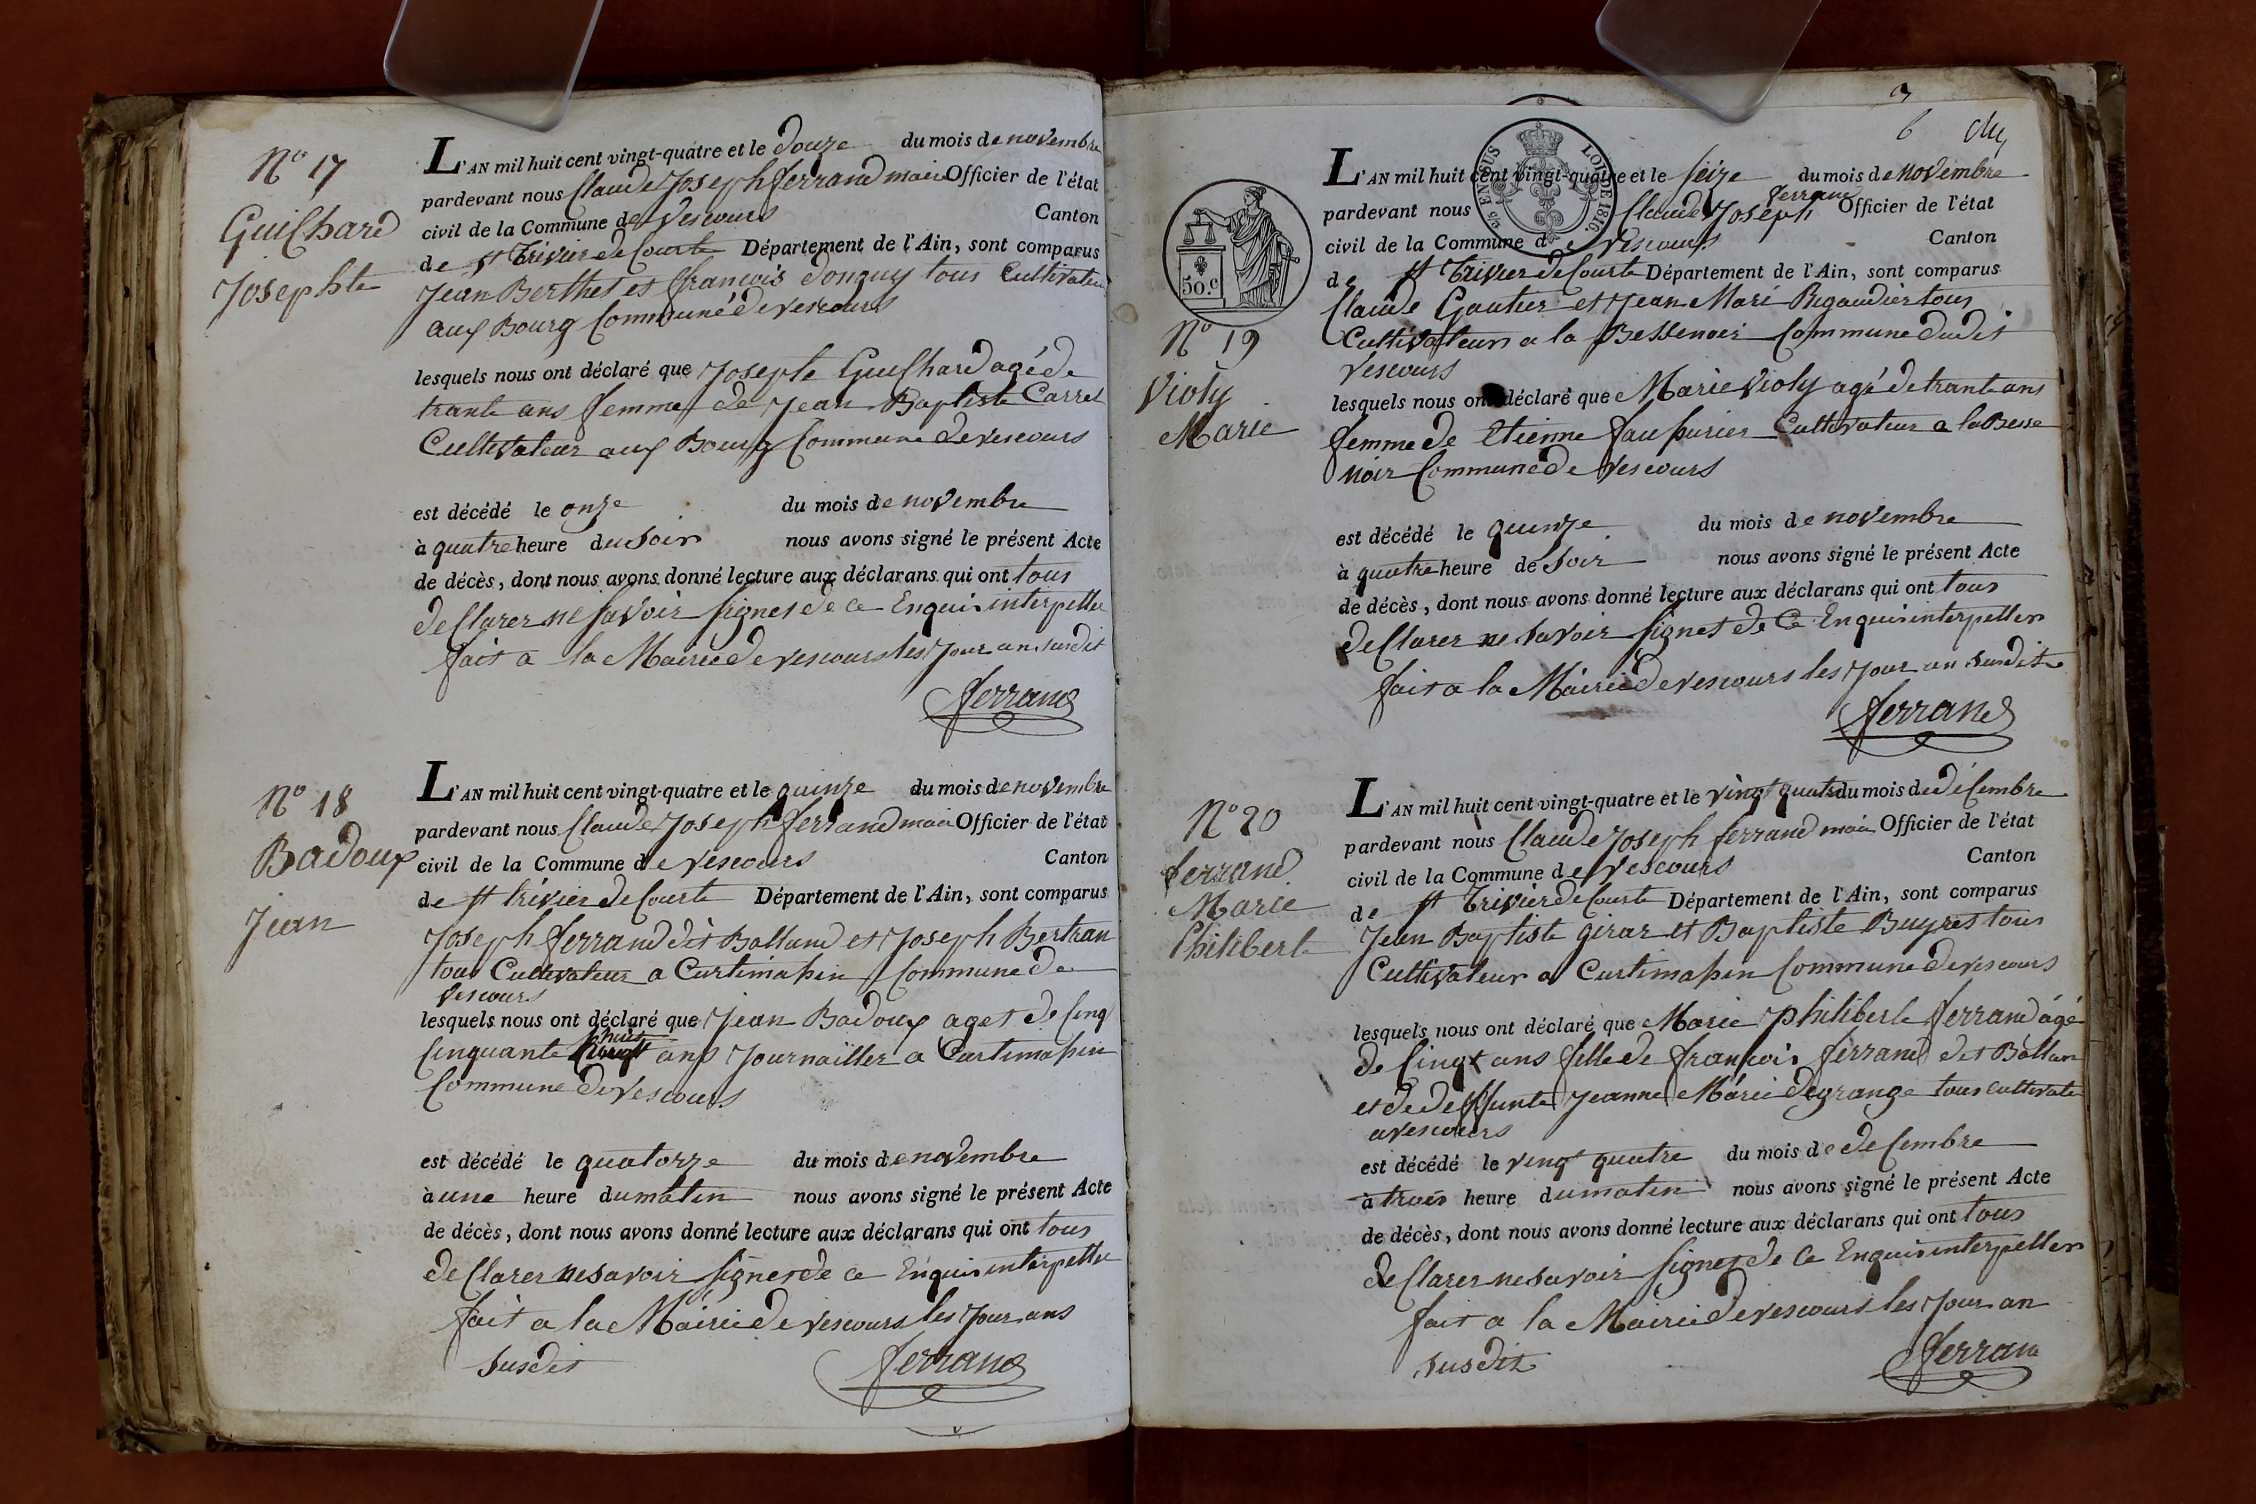 N° 17
Guilhard
Josephte
L'AN mil huit cent vingt-quatre et le douze du mois de novembre
pardevant nous Claude Joseph ferrand maire Officier de l'état
civil de la Commune de vescours Canton
de st Trivier de Courte Département de l'Ain, sont comparus
Jean Berthet et francois donguy tous Cultivateur
aux Bourg Commune de vescours
lesquels nous ont déclaré que Josephte Guilhard agé de
trante ans femme de Jean Baptiste Carrel
Cultivateur aux Bourg Commune de vescours
est décédé le onze du mois de novembre
à quatre heure du soir nous avons signé le présent Acte
de décès, dont nous avons donné lecture aux déclarans qui ont tous
de Clarer ne savoir signer de ce Enquis interpelle
fait a la Mairie de vescours les Jour an susdit
ferrand
N° 18
Badoux
Jean
L'AN mil huit cent vingt-quatre et le quinze du mois de novembre
pardevant nous Claude Joseph ferrand maire Officier de l'état
civil de la Commune de vescours Canton
de st trivier de Courte Département de l'Ain, sont comparus
Joseph ferrand dit Balland et Joseph Bertran
tous Cultivateur a Curtimapin Commune de
vescours
lesquels nous ont déclaré que Jean Badoux aget de Cinq
Cinquante huit ans Journaillier a Curtimapin
Commune de vescours
est décédé le quatorze du mois de novembre
à une heure du matin nous avons signé le présent Acte
de décès, dont nous avons donné lecture aux déclarans qui ont tous
de Clarer ne savoir signer de ce Enquis interpelle
fait a la Mairie de vescours les Jour ans
susdit
ferrand
6
ENSUS
LOI DE 1816.
50.c
N° 19
Violy
Marie
L'AN mil huit cent vingt-quatre et le seize du mois de novembre
pardevant nous Claude Joseph ferrand Officier de l'état
civil de la Commune de vescours Canton
de st Trivier de Courte Département de l'Ain, sont comparus
Claude Gautier et Jean Marie Rigaudier tous
Cultivateur a la Bessenoir Commune dudit
vescours
lesquels nous ont déclaré que Marie Violy agé de trante ans
femme de Etienne faupurier Cultivateur a la Besse
noir Commune de vescours
est décédé le quinze du mois de novembre
à quatre heure de soir nous avons signé le présent Acte
de décès, dont nous avons donné lecture aux déclarans qui ont tous
de Clarer ne savoir signer de Ce Enquis interpeller
fait a la Mairie de vescours les Jour an susdit
ferrand
N° 20
ferrand
Marie
Philiberte
L'AN mil huit cent vingt-quatre et le vingt quatre du mois de déCembre
pardevant nous Claude Joseph ferrand maire Officier de l'état
civil de la Commune de vescours Canton
de st Trivier de Courte Département de l'Ain, sont comparus
Jean Baptiste girar et Baptiste Buyres tous
Cultivateur a Curtimapin Commune de vescours
lesquels nous ont déclaré que Marie philiberte ferrand âgé
de Cinq ans fille de françois ferrand dit Ballan
et de deffunte Jeanne Marie degrange tous cultivate
a vescours
est décédé le vingt quatre du mois de deCembre
à trois heure du matin nous avons signé le présent Acte
de décès, dont nous avons donné lecture aux déclarans qui ont tous
de Clarer ne savoir signer de Ce Enquis interpeller
fait a la Mairie de vescours les Jour an
susdit
ferran